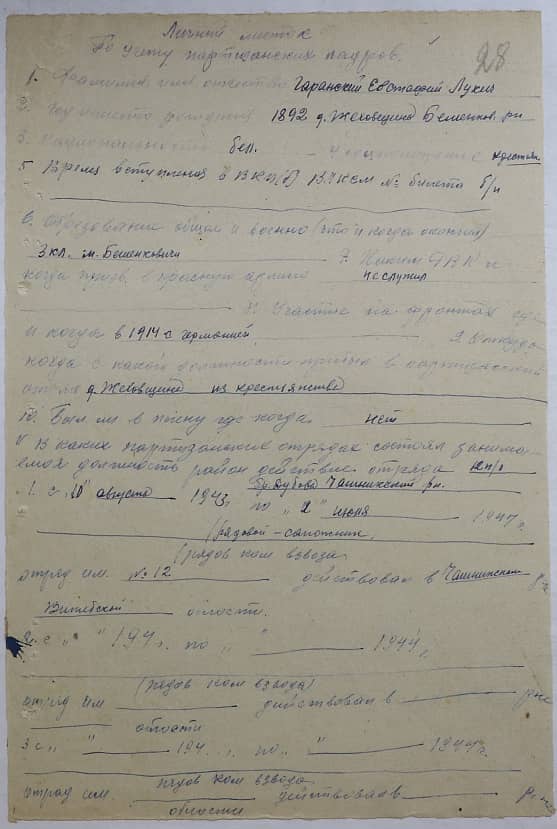 Личный листок
28
По учету партизанских кадров.
1. Фамилия имя отчество Гаранский Евстафий Лукич
2. Год и место рождения 1892 д. Жеговщина Бешенков. рн
3. Национальность бел. 4 соцположение крестьян.
5. Время вступления в ВКП(б) ВЛКСМ № билета б/п
6. Образование общее и военное (что и когда окончил)
3 кл. м. Бешенковичи 7. Каким РВК и
когда призв. в красную армию не служил
8. Участие на фронтах где
и когда в 1914 с германией 9. Откуда
когда с какой должности прибыл в партизанский
отряд д. Жеговщина из крестьянства
10. Был ли в плену где когда. нет
В каких партизанских отрядах состоял занима-
емая должность район действия отряда
бр. Дубова Чашникский рн.
1. с "20" августа 1943, по "2" июня 1944 г.
(рядовой - сапожник,
(рядов ком взвода.
отряд им. № 12 действовал в Чашникском р-не
Витебской области.
2. с " " 194 , по " 1944,
(рядов ком взвода)
отряд им действовал в рне
области
3 с " " 194 , по " 1944 г.
рядов ком взвода
отряд им. действовал в р-не
области